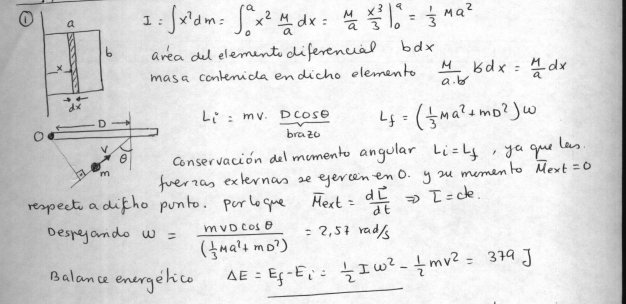 ① a
b
x
dx
I = ∫x²dm = ∫₀ᵃ x² M/a dx = M/a x³/3 |₀ᵃ = 1/3 Ma²
área del elemento diferencial bdx
masa contenida en dicho elemento M/(a·b) b dx = M/a dx
D
O
V
θ
m
Li = mv. Dcosθ
brazo
Lf = (1/3 Ma² + mD²)ω
Conservación del momento angular Li = Lf, ya que las
fuerzas externas se ejercen en O. y su momento M̄ext = 0
respecto a dicho punto. Por lo que M̄ext = dL̄/dt ⇒ L̄ = cte.
Despejando ω = mvDcosθ/(1/3 Ma² + mD²) = 2,57 rad/s
Balance energético ΔE = Ef - Ei = 1/2 Iω² - 1/2 mv² = 379 J